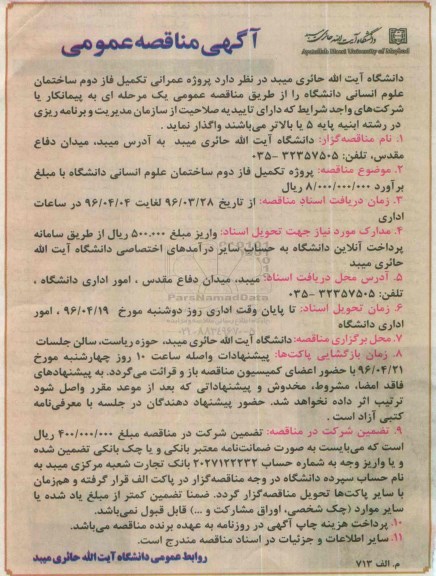 آگهی مناقصه عمومی
دانشگاه آیت الله حائری میبد
Ayatollah Haeri University of Meybod
دانشگاه آیت الله حائری میبد در نظر دارد پروژه عمرانی تکمیل فاز دوم ساختمان
علوم انسانی دانشگاه را از طریق مناقصه عمومی یک مرحله ای به پیمانکار یا
شرکت‌های واجد شرایط که دارای تاییدیه صلاحیت از سازمان مدیریت و برنامه ریزی
در رشته ابنیه پایه ۵ یا بالاتر می‌باشند واگذار نماید .
۱. نام مناقصه‌گزار: دانشگاه آیت الله حائری میبد به آدرس میبد، میدان دفاع
مقدس، تلفن: ۳۲۳۵۷۵۰۵ -۰۳۵
۲. موضوع مناقصه: پروژه تکمیل فاز دوم ساختمان علوم انسانی دانشگاه با مبلغ
برآورد ۸/۰۰۰/۰۰۰/۰۰۰ ریال
۳. زمان دریافت اسناد مناقصه: از تاریخ ۹۶/۰۳/۲۸ لغایت ۹۶/۰۴/۰۴ در ساعات
اداری
۴. مدارک مورد نیاز جهت تحویل اسناد: واریز مبلغ ۵۰۰.۰۰۰ ریال از طریق سامانه
پرداخت آنلاین دانشگاه به حساب سایر درآمدهای اختصاصی دانشگاه آیت الله
حائری میبد
۵. آدرس محل دریافت اسناد: میبد، میدان دفاع مقدس ، امور اداری دانشگاه ،
تلفن: ۳۲۳۵۷۵۰۵ -۰۳۵
ParsNamadData
۶. زمان تحویل اسناد: تا پایان وقت اداری روز دوشنبه مورخ ۹۶/۰۴/۱۹ ، امور
اداری دانشگاه
۰۲۱-۸۸۳۴۹۶۷۰-۵
۷. محل برگزاری مناقصه: دانشگاه آیت الله حائری میبد، حوزه ریاست، سالن جلسات
۸. زمان بازگشایی پاکت‌ها: پیشنهادات واصله ساعت ۱۰ روز چهارشنبه مورخ
۹۶/۰۴/۲۱ با حضور اعضای کمیسیون مناقصه باز و قرائت می‌گردد. به پیشنهادهای
فاقد امضا، مشروط، مخدوش و پیشنهاداتی که بعد از موعد مقرر واصل شود
ترتیب اثر داده نخواهد شد. حضور پیشنهاد دهندگان در جلسه با معرفی‌نامه
کتبی آزاد است .
۹. تضمین شرکت در مناقصه: تضمین شرکت در مناقصه مبلغ ۴۰۰/۰۰۰/۰۰۰ ریال
است که می‌بایست به صورت ضمانت‌نامه معتبر بانکی و یا چک بانکی تضمین شده
و یا واریز وجه به شماره حساب ۲۰۲۷۱۲۲۲۳۲ بانک تجارت شعبه مرکزی میبد به
نام حساب سپرده دانشگاه در وجه مناقصه‌گزار در پاکت الف قرار گرفته و هم‌زمان
با سایر پاکت‌ها تحویل مناقصه‌گزار گردد. ضمنا تضمین کمتر از مبلغ یاد شده یا
سایر موارد (چک شخصی، اوراق مشارکت و ...) قابل قبول نمی‌باشد.
۱۰. پرداخت هزینه چاپ آگهی در روزنامه به عهده برنده مناقصه می‌باشد.
۱۱. سایر اطلاعات و جزئیات در اسناد مناقصه مندرج است.
روابط عمومی دانشگاه آیت الله حائری میبد
م. الف ۷۱۳